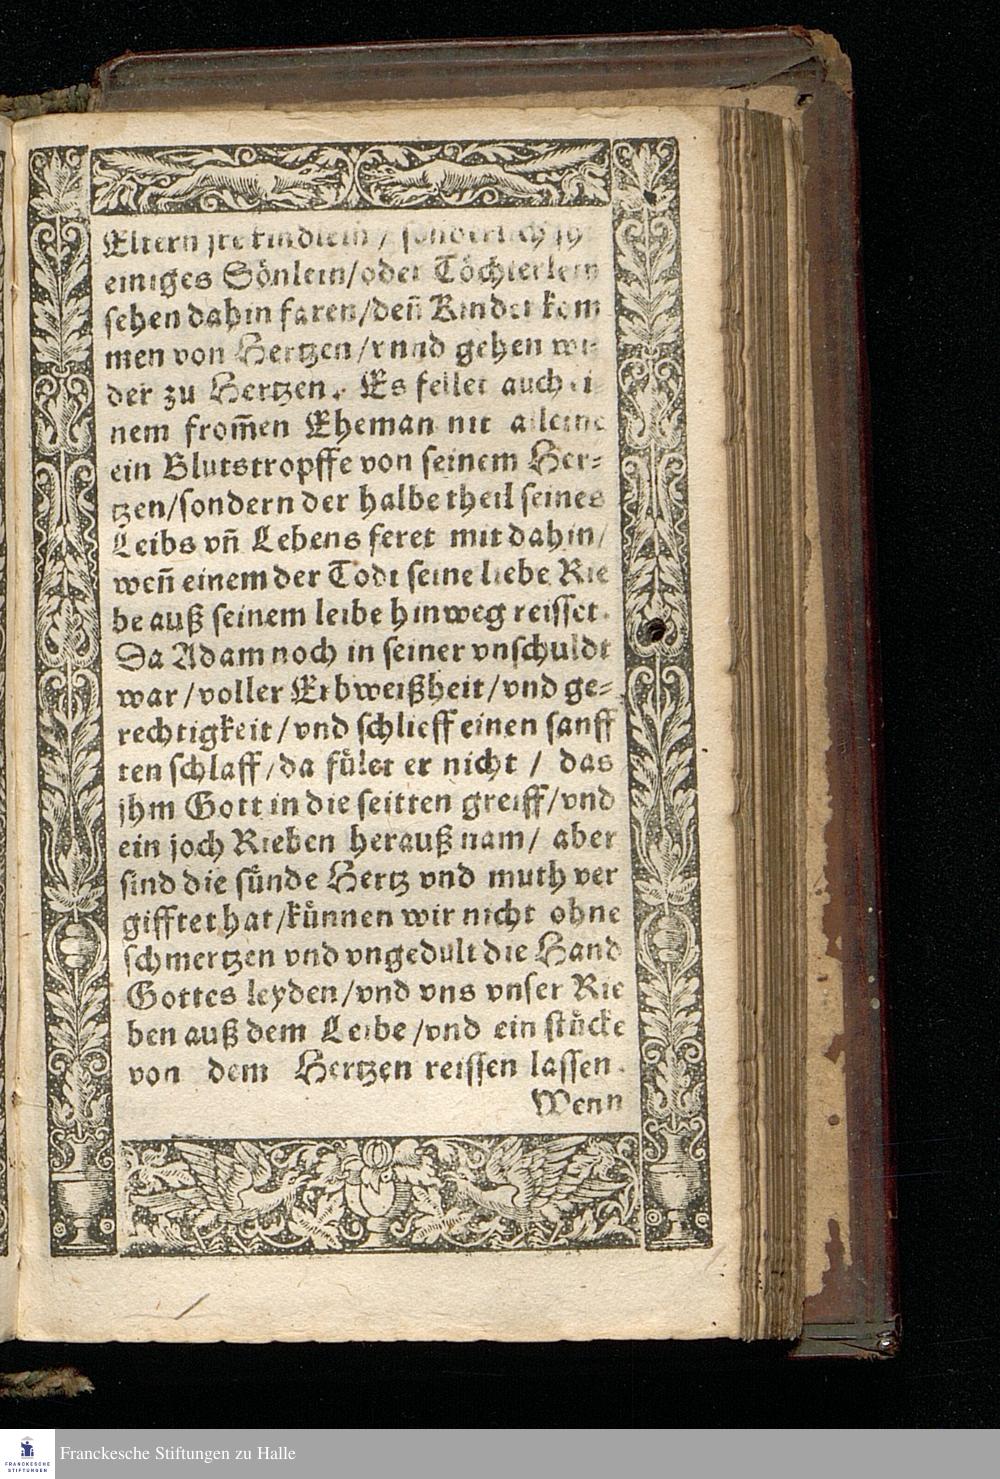 Eltern jre kindlein / sonderlich jr
einiges Sönlein/oder Töchterlein
sehen dahin faren/deñ Kinder kom
men von Hertzen/vnnd gehen wi-
der zu Hertzen. Es fellet auch ei
nem from̃en Eheman nit alleine
ein Blutstropffe von seinem Her-
tzen/sondern der halbe theil seines
Leibs vñ Lebens feret mit dahin/
weñ einem der Todt seine liebe Rie
be auß seinem leibe hinweg reisset.
Da Adam noch in seiner vnschuldt
war/voller Erbweißheit/vnd ge-
rechtigkeit/vnd schlieff einen sanff
ten schlaff/da fület er nicht / das
jhm Gott in die seitten greiff/vnd
ein joch Rieben herauß nam/ aber
sind die sünde Hertz vnd muth ver
gifftet hat/künnen wir nicht ohne
schmertzen vnd vngedult die Hand
Gottes leyden/vnd vns vnser Rie
ben auß dem Leibe/vnd ein stücke
von dem Hertzen reissen lassen.
Wenn
FRANCKESCHE
STIFTUNGEN
Franckesche Stiftungen zu Halle